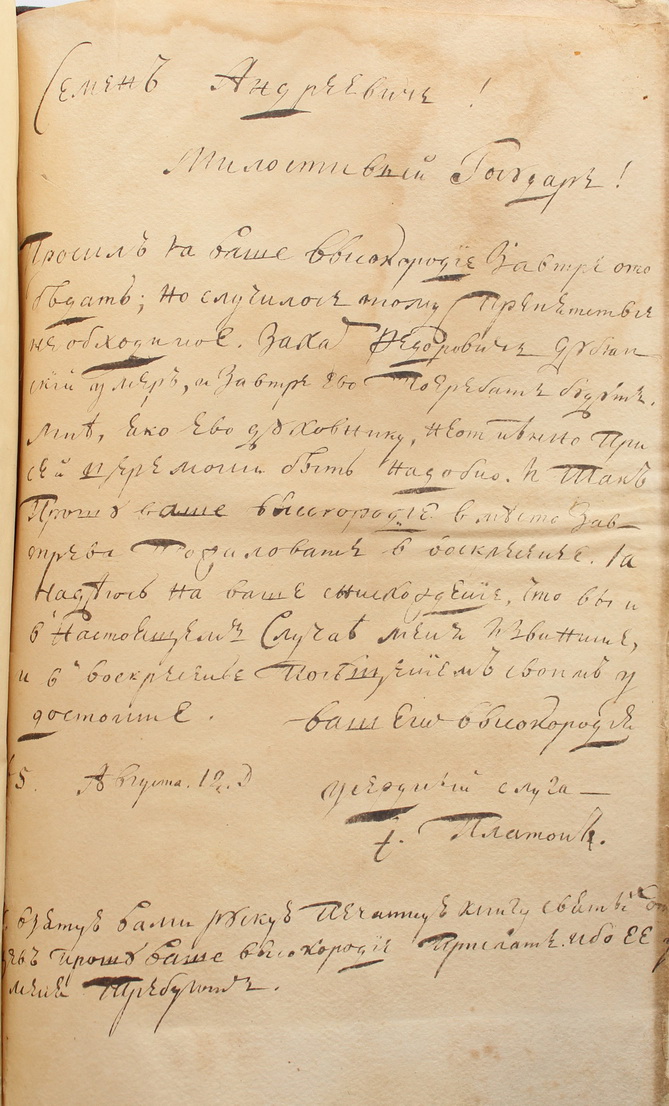 Семенъ Андреевичь!
Милостивый Государь!
Просилъ я ваше высокородіе завтре ото
бѣдать; но случилося тому препятствіе
необходимое. Заха Ѳедоровичь
скій умеръ, и завтре ево погребать будутъ.
Мнѣ, яко ево духовнику, неотмѣнно при
сей церемоніи быть надобно. И такъ
Прошу ваше высокородіе вмѣсто зав
трева пожаловать в воскресенье. Я
надѣюсь на ваше снисхожденіе, что вы и
в настоящемъ случаѣ меня извините,
и в воскресенье посѣщеніемъ своимъ у
достоите. вашего высокородія
5. Августа. 12. д усердный слуга
Платонъ.
взятую вами рускую печатную книгу святыхъ
прошу ваше высокородіе прислать, ибо ее у
меня требуютъ.